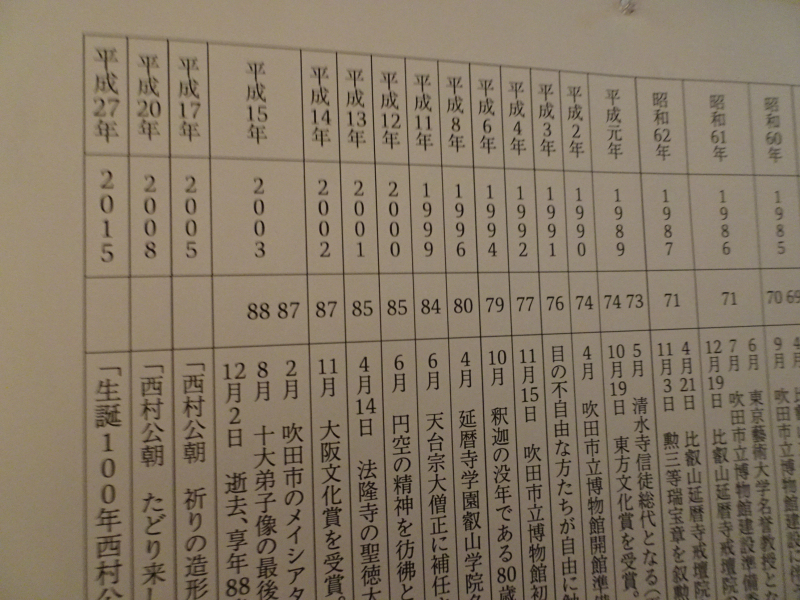 昭和60年
1985
70 69
4月
9月 吹田市立博物館建設に
6月 東京藝術大学名誉教授とな
昭和61年
1986
71
7月 吹田市立博物館建設準備
12月19日 比叡山延暦寺戒壇院の
昭和62年
1987
71
4月21日 比叡山延暦寺戒壇院
11月3日 勲三等瑞宝章を叙勲
平成元年
1989
74 73
5月 清水寺信徒総代となる
10月19日 東方文化賞を受賞。
平成2年
1990
74
4月 吹田市立博物館開館準
平成3年
1991
76
目の不自由な方たちが自由に触
平成4年
1992
77
11月15日 吹田市立博物館初
平成6年
1994
79
10月 釈迦の没年である80歳
平成8年
1996
80
4月 延暦寺学園叡山学院
平成11年
1999
84
6月 天台宗大僧正に補任
平成12年
2000
85
6月 円空の精神を彷彿と
平成13年
2001
85
4月14日 法隆寺の聖徳太
平成14年
2002
87
11月 大阪文化賞を受賞。
平成15年
2003
88 87
2月 吹田市のメイシアタ
8月 十大弟子像の最後
12月2日 逝去、享年88
平成17年
2005
「西村公朝 祈りの造形
平成20年
2008
「西村公朝 たどり来し
平成27年
2015
「生誕100年西村公